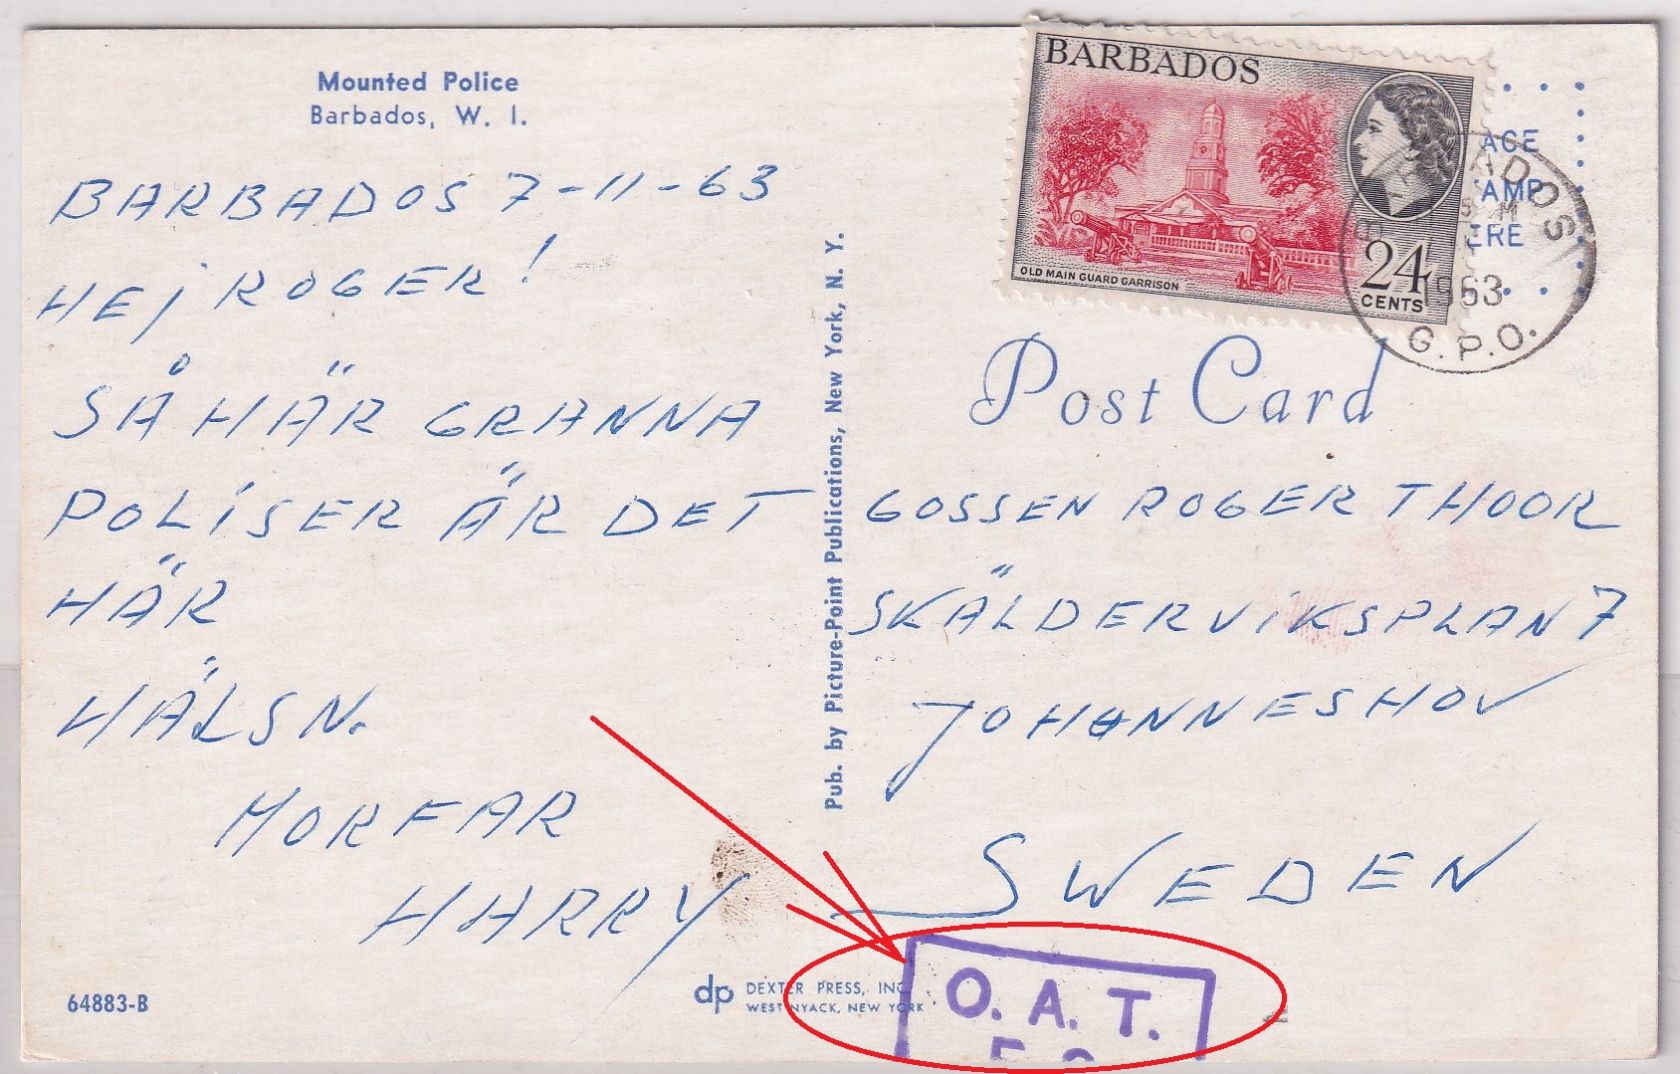 Mounted Police
Barbados, W. I.
BARBADOS 7-11-63
HEJ ROGER!
SÅ HÄR GRANNA
POLISER ÄR DET
HÄR
HÄLSN.
MORFAR
HARRY
64883-B
dp DEXTER PRESS, INC.
WEST NYACK, NEW YORK
Pub. by Picture-Point Publications, New York, N. Y.
BARBADOS
OLD MAIN GUARD GARRISON
24
CENTS
1963
G.P.O.
Post Card
GOSSEN ROGER THOOR
SKÄLDERVIKSPLAN 7
JOHANNESHOV
SWEDEN
O. A. T.